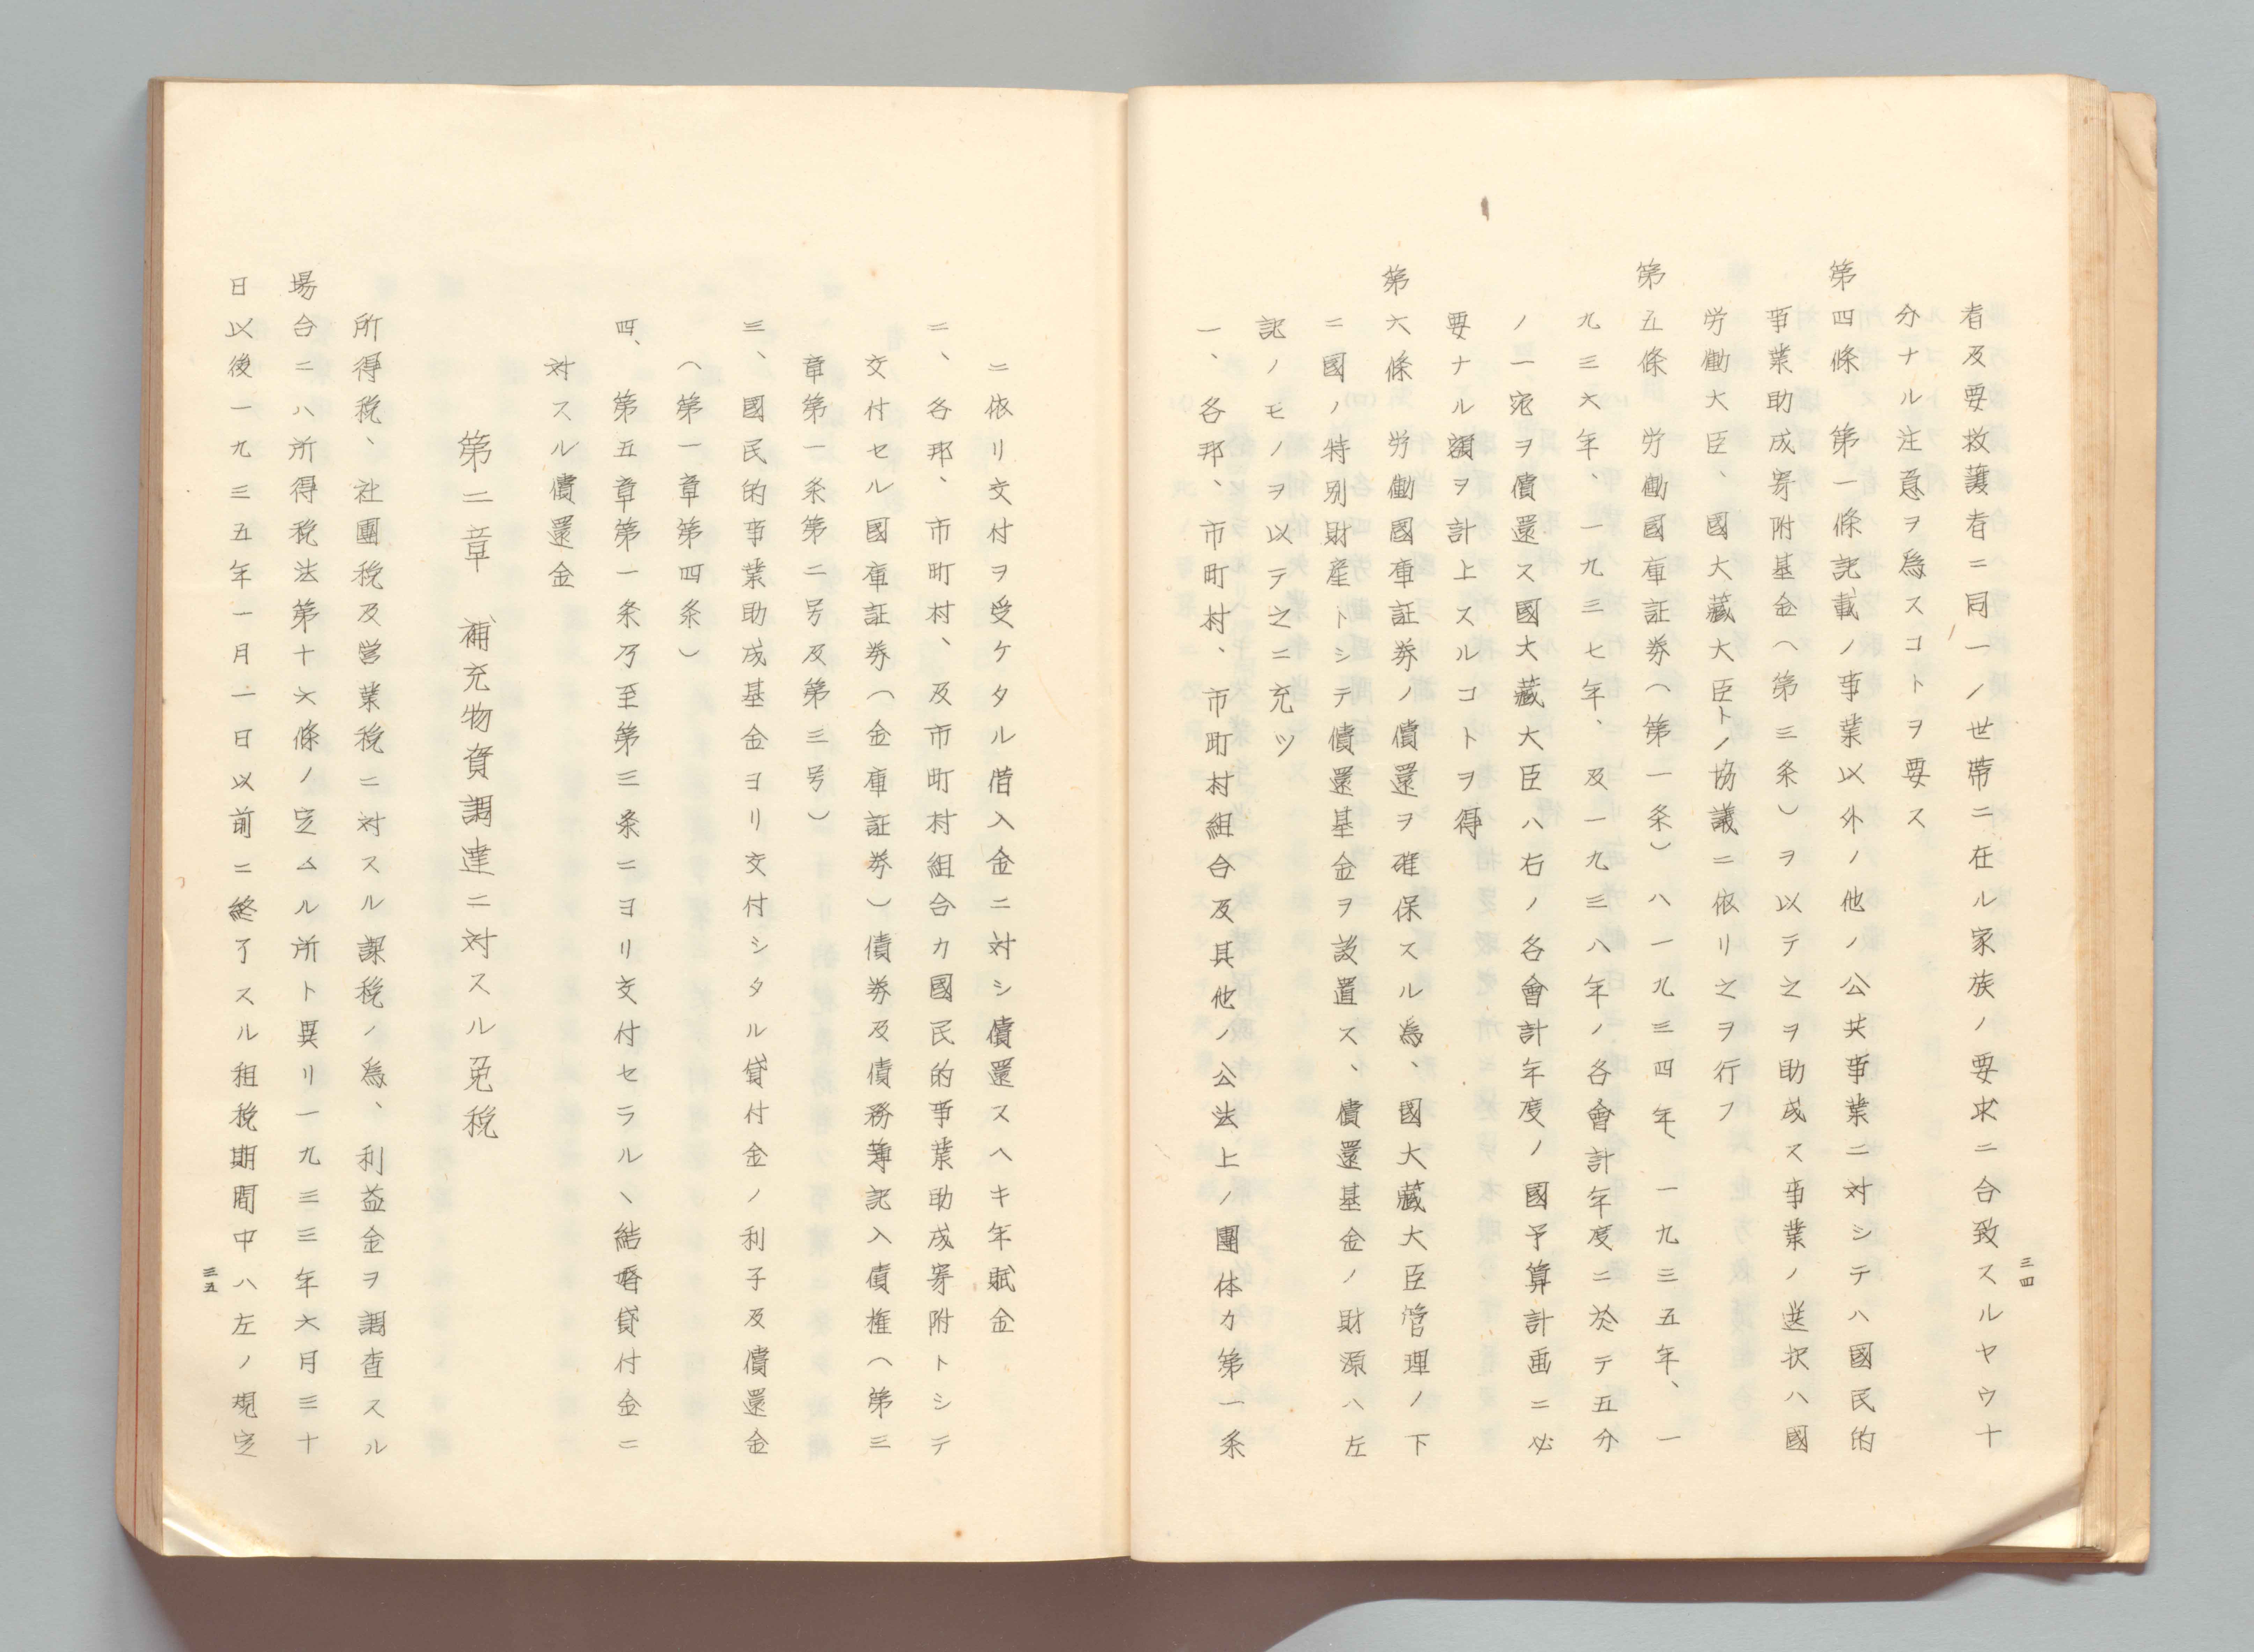 者及要救護者ニ同一ノ世帯ニ在ル家族ノ要求ニ合致スルヤウ十
分ナル注意ヲ為スコトヲ要ス
第四條　第一條記載ノ事業以外ノ他ノ公共事業ニ対シテハ國民的
事業助成寄附基金（第三条）ヲ以テ之ヲ助成ス事業ノ選択ハ國
労働大臣、國大藏大臣トノ協議ニ依リ之ヲ行フ
第五條　労働國庫証券（第一条）ハ一九三四年　一九三五年、一
九三六年、一九三七年、及一九三八年ノ各會計年度ニ於テ五分
ノ一宛ヲ償還ス國大藏大臣ハ右ノ各會計年度ノ國予算計画ニ必
要ナル額ヲ計上スルコトヲ得
第六條　労働國庫証券ノ償還ヲ確保スル為、國大藏大臣管理ノ下
ニ國ノ特別財産トシテ償還基金ヲ設置ス、償還基金ノ財源ハ左
記ノモノヲ以テ之ニ充ツ
一、各邦、市町村、市町村組合及其他ノ公法上ノ團体カ第一条
三四
ニ依リ交付ヲ受ケタル借入金ニ対シ償還スヘキ年賦金
二、各邦、市町村、及市町村組合カ國民的事業助成寄附トシテ
交付セル國庫証券（金庫証券）債券及債務薄記入債権（第三
章第一条第二号及第三号）
三、國民的事業助成基金ヨリ交付シタル貸付金ノ利子及償還金
（第一章第四条）
四、第五章第一条乃至第三条ニヨリ交付セラルヽ結婚貸付金ニ
対スル償還金
第二章　補充物資調達ニ対スル免税
所得税、社團税及営業税ニ対スル課税ノ為、利益金ヲ調査スル
場合ニハ所得税法第十六條ノ定ムル所ト異リ一九三三年六月三十
日以後一九三五年一月一日以前ニ終了スル租税期間中ハ左ノ規定
三五